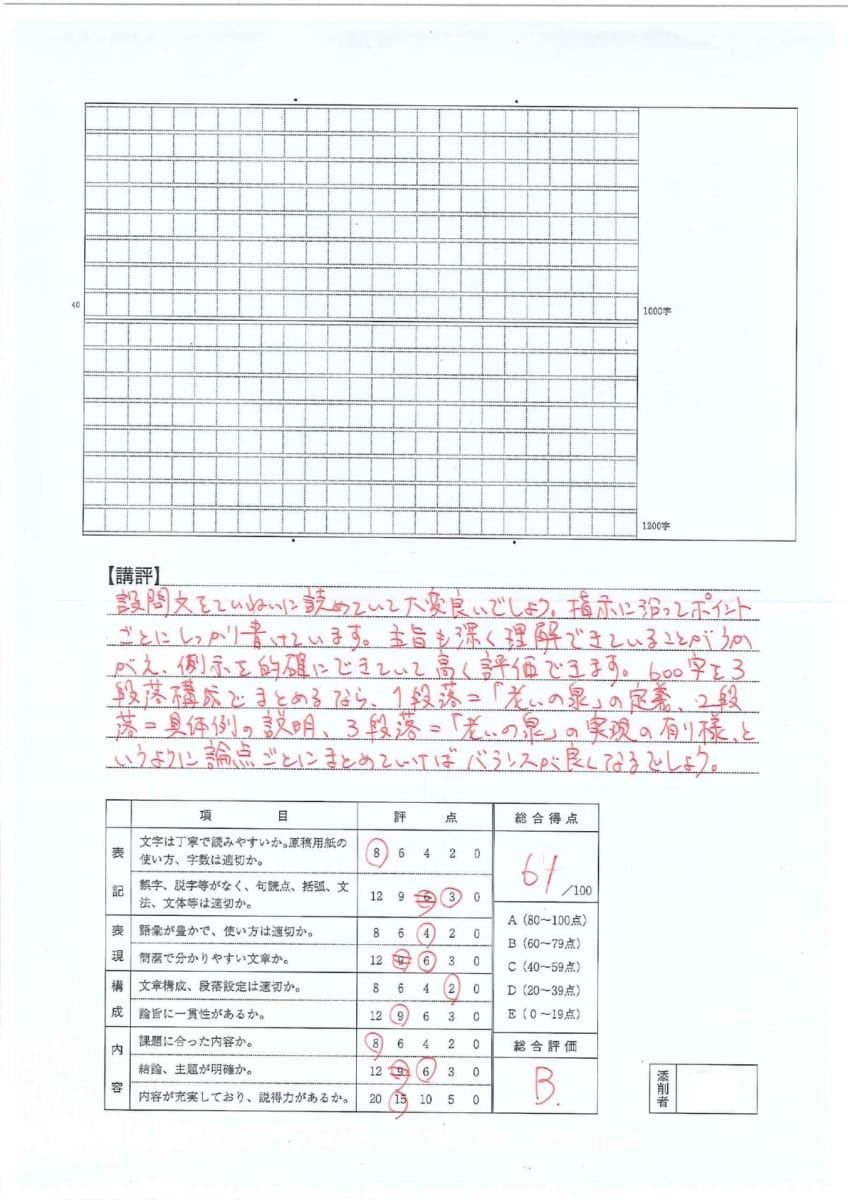 40
1000字
1200字
【講評】
設問文をていねいに読めていて大変良いでしょう。指示に沿ってポイント
ごとにしっかり書けています。主旨も深く理解できていることがうか
がえ、例示を的確にできていて高く評価できます。600字を3
段落構成でまとめるなら、1段落=「老いの泉」の定義、2段
落=具体例の説明、3段落=「老いの泉」の実現の有り様、と
いうように論点ごとにまとめていけばバランスが良くなるでしょう。
項 目 評 点 総合得点
表記
文字は丁寧で読みやすいか。原稿用紙の
使い方、字数は適切か。
8 6 4 2 0
誤字、脱字等がなく、句読点、括弧、文
法、文体等は適切か。
12 9 6 3 0
表現
語彙が豊かで、使い方は適切か。 8 6 4 2 0
簡潔で分かりやすい文章か。 12 9 6 3 0
構成
文章構成、段落設定は適切か。 8 6 4 2 0
論旨に一貫性があるか。 12 9 6 3 0
内容
課題に合った内容か。 8 6 4 2 0
結論、主題が明確か。 12 9 6 3 0
内容が充実しており、説得力があるか。 20 15 10 5 0
61
/100
A(80～100点)
B(60～79点)
C(40～59点)
D(20～39点)
E(0～19点)
総合評価
B.
添削者